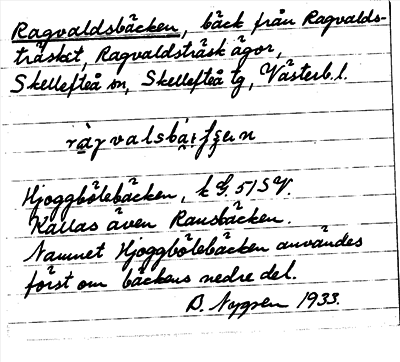 Ragvaldsbäcken, bäck från Ragvalds-
träsket, Ragvaldsträsk ägor,
Skellefteå sn, Skellefteå tg, Västerb. l.
Hjoggbölebäcken, k L. 51 SV.
Kallas även Rausbäcken.
Namnet Hjoggbölebäcken användes
först om bäckens nedre del.
D. Nygren 1933.